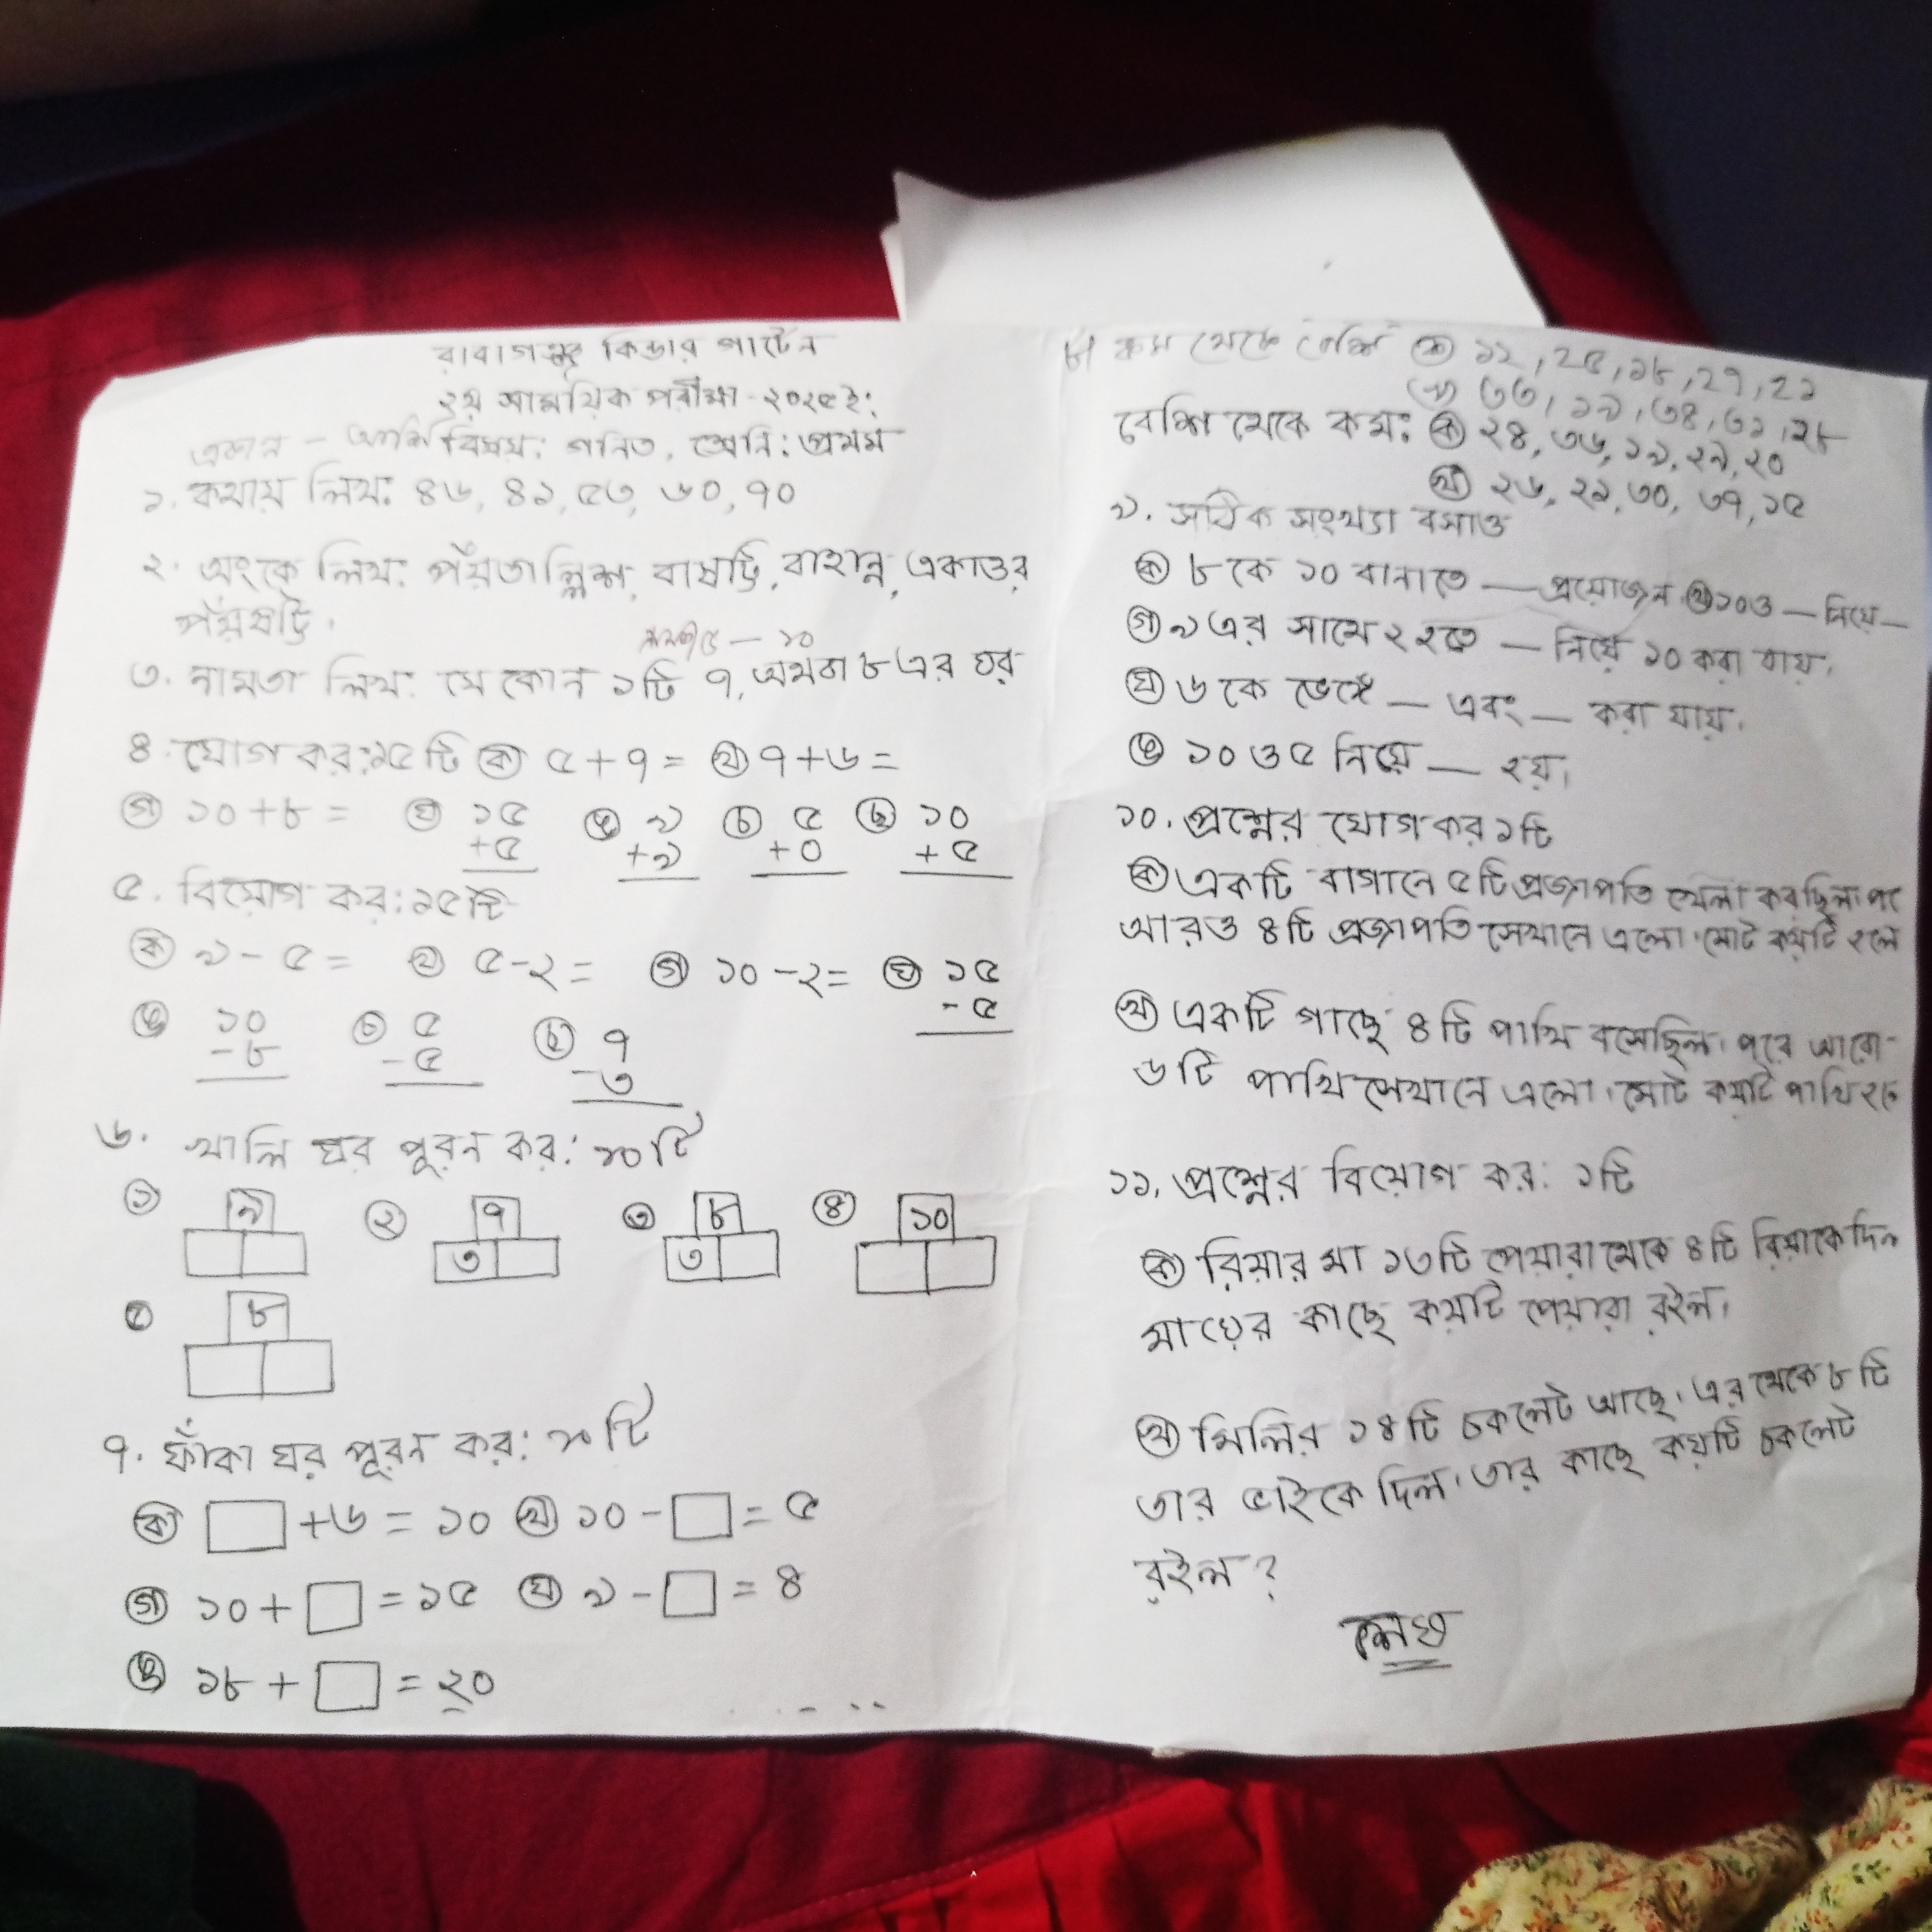 রাবাগঞ্জ কিন্ডার গার্টেন
২য় সাময়িক পরীক্ষা-২০২৫ ইং
বিষয়: গনিত, শ্রেনি: প্রথম
১. কথায় লিখ: ৪৬, ৪১, ৫৩, ৬০, ৭০
২. অংকে লিখ: পঁয়তাল্লিশ, বাষট্টি, বাহান্ন, একাত্তর
পঁয়ষট্টি.
৩. নামতা লিখ: যে কোন ১টি ৭, অথবা ৮ এর ঘর
৪. যোগ কর: ১৫টি (ক) ৫+৭= (খ) ৭+৬=
(গ) ১০+৮= (ঘ) ১৫ (ঙ) ৯ (চ) ৫ (ছ) ১০
+৫ +৯ +০ +৫
৫. বিয়োগ কর: ১৫টি
(ক) ৯-৫= (খ) ৫-২= (গ) ১০-২= (ঘ) ১৫
-৫
(ঙ) ১০ (চ) ৫ (ছ) ৭
-৮ -৫ -৩
৬. খালি ঘর পূরন কর: ১০টি
(১) ৯ (২) ৭ (৩) ৮ (৪) ১০
৩ ৩
(৫) ৮
৭. ফাঁকা ঘর পূরন কর: ১০টি
(ক) +৬=১০ (খ) ১০- =৫
(গ) ১০+ =১৫ (ঘ) ৯- =৪
(ঙ) ১৮+ =২০
৮। কম থেকে বেশি (ক) ১২, ২৫, ১৮, ২৭, ২১
(খ) ৩৩, ১৯, ৩৪, ৩১, ২৮
বেশি থেকে কম: (ক) ২৪, ৩৬, ১৯, ২৯, ২০
(খ) ২৬, ২১, ৩০, ৩৭, ১৫
৯. সঠিক সংখ্যা বসাও
(ক) ৮কে ১০ বানাতে — প্রয়োজন. (খ) ১০ও — নিয়ে —
(গ) ৯এর সাথে ২ হতে — নিয়ে ১০ করা যায়.
(ঘ) ৬কে ভেঙ্গে — এবং — করা যায়.
(ঙ) ১০ ও ৫ নিয়ে — হয়।
১০. প্রশ্নের যোগ কর ১টি
(ক) একটি বাগানে ৫টি প্রজাপতি খেলা করছিল। পরে
আরও ৪টি প্রজাপতি সেখানে এলো। মোট কয়টি হলো
(খ) একটি গাছে ৪টি পাখি বসেছিল। পরে আরো-
৬টি পাখি সেখানে এলো। মোট কয়টি পাখি হলো
১১. প্রশ্নের বিয়োগ কর: ১টি
(ক) রিয়ার মা ১৩টি পেয়ারা থেকে ৪টি রিয়াকে দিল
মায়ের কাছে কয়টি পেয়ারা রইল।
(খ) মিলির ১৪টি চকলেট আছে। এর থেকে ৮টি
তার ভাইকে দিল। তার কাছে কয়টি চকলেট
রইল?